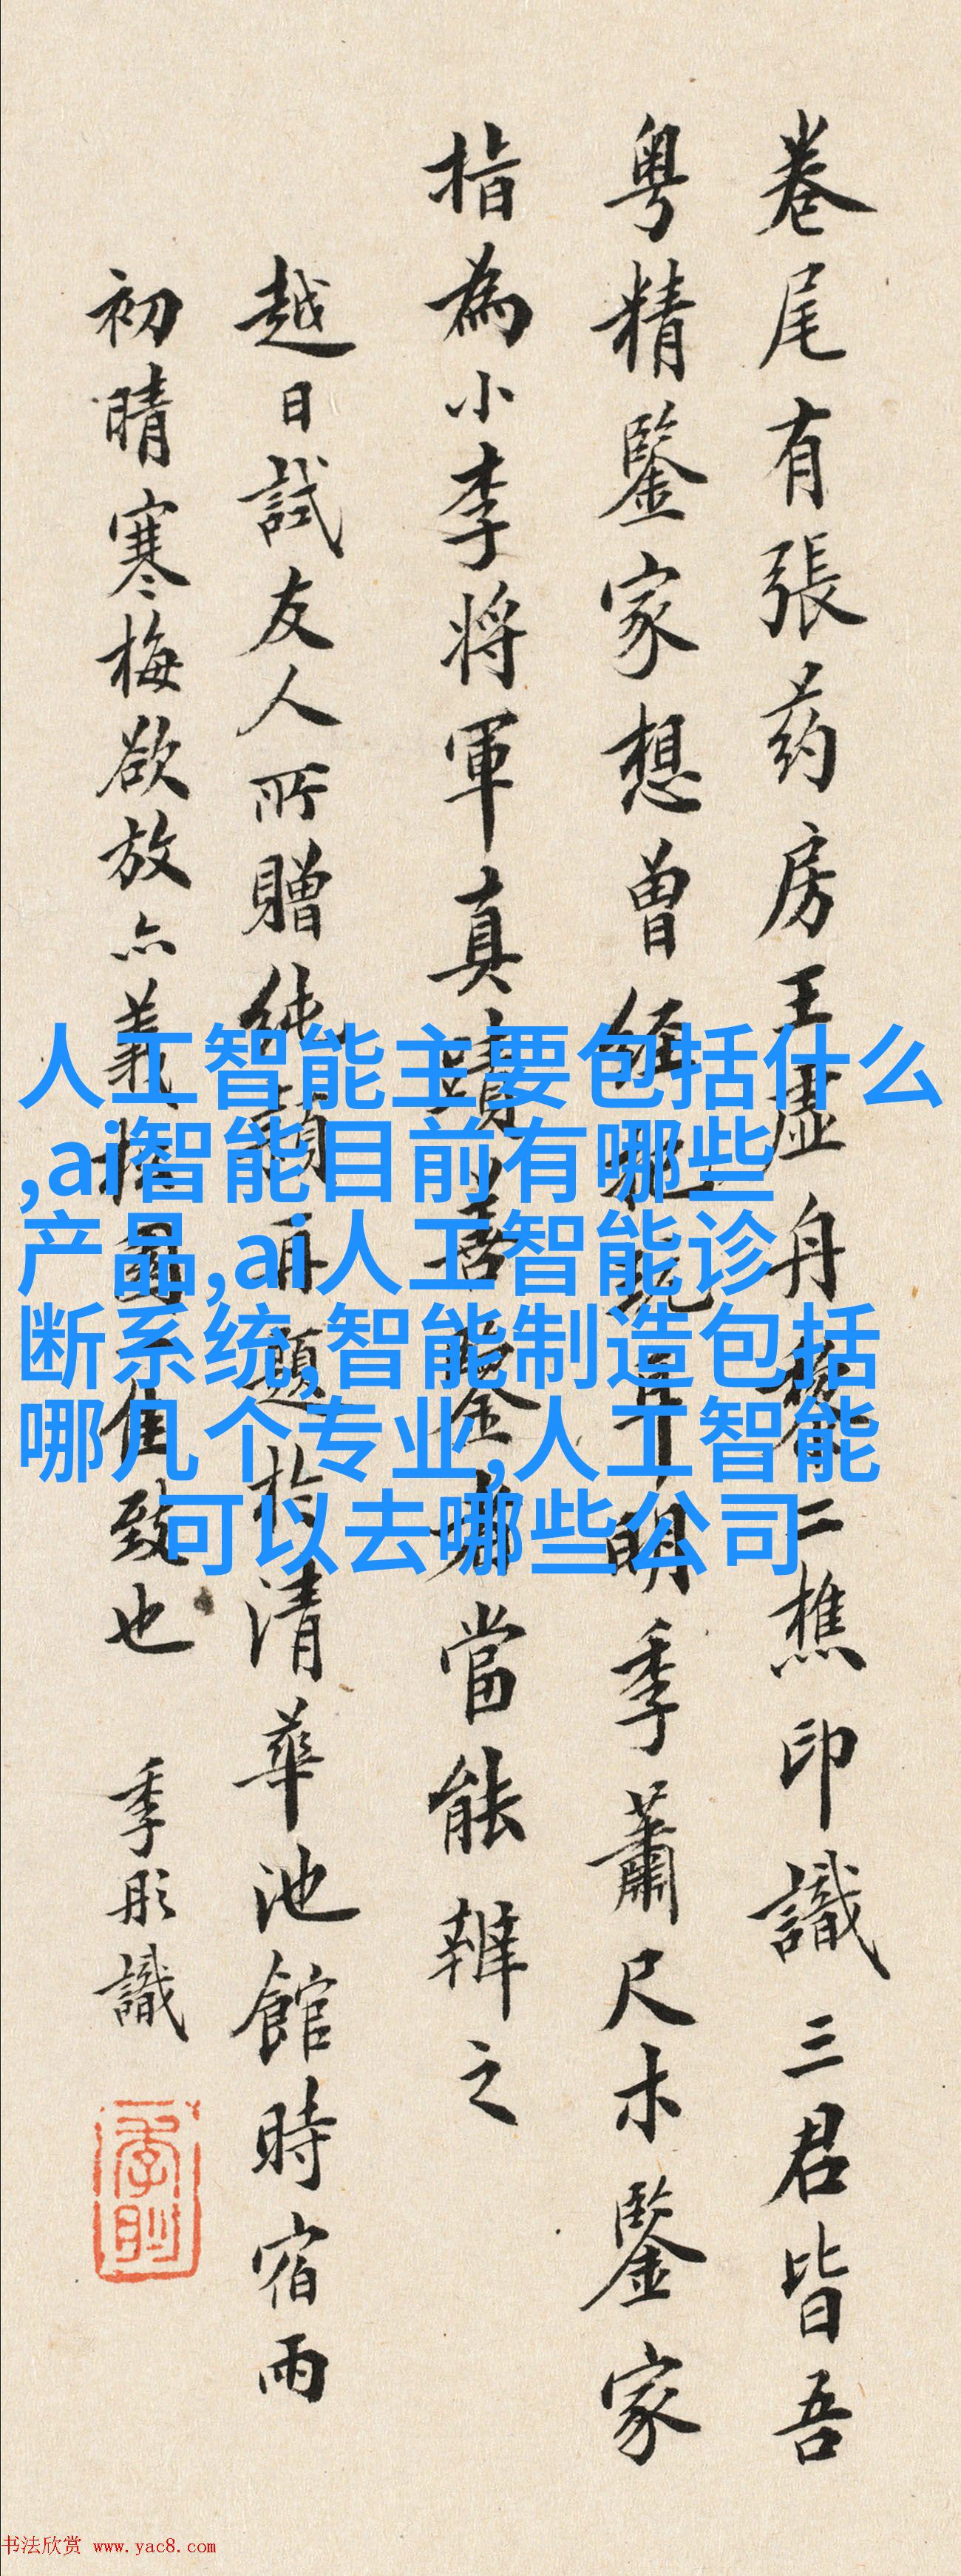 卷尾有張药房王虛舟黎二樵印識三君皆吾
粤精鑒家想曾經明季蕭尺木鑒家
指為小李將軍真蹟善鑒者當能辨之
越日試友人所贈純穎再題於清華池館時宿雨
初晴寒梅欲放亦一佳致也 季彤識
人工智能主要包括什么
,ai智能目前有哪些
产品,ai人工智能诊
断系统,智能制造包括
哪几个专业,人工智能
可以去哪些公司
书法欣赏 www.yac8.com